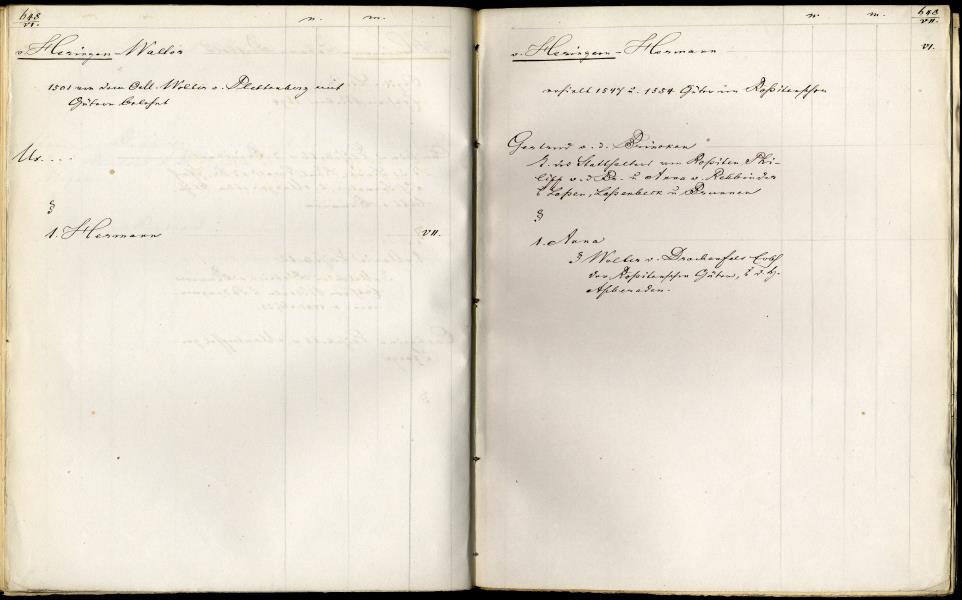 648
VI.
n. m.
v. Heringen - Walter
1501 von dem O.M. Wolter v. Plettenberg mit
Gütern belehnt
Ux. . . .
§
1. Hermann VII.
n. m.
648
VII.
v. Heringen - Hermann VI.
erhielt 1547 u. 1554 Güter im Rossitenschen
Gertrud v. d. Brincken
T. des Statthalters von Rossiten Phi-
lipp v. d. Br. u. Anna v. Rehbinder
§
1. Anna
Wolter v. Drachenfels Erbh
der Rossitenschen Güter,
Ascheraden.